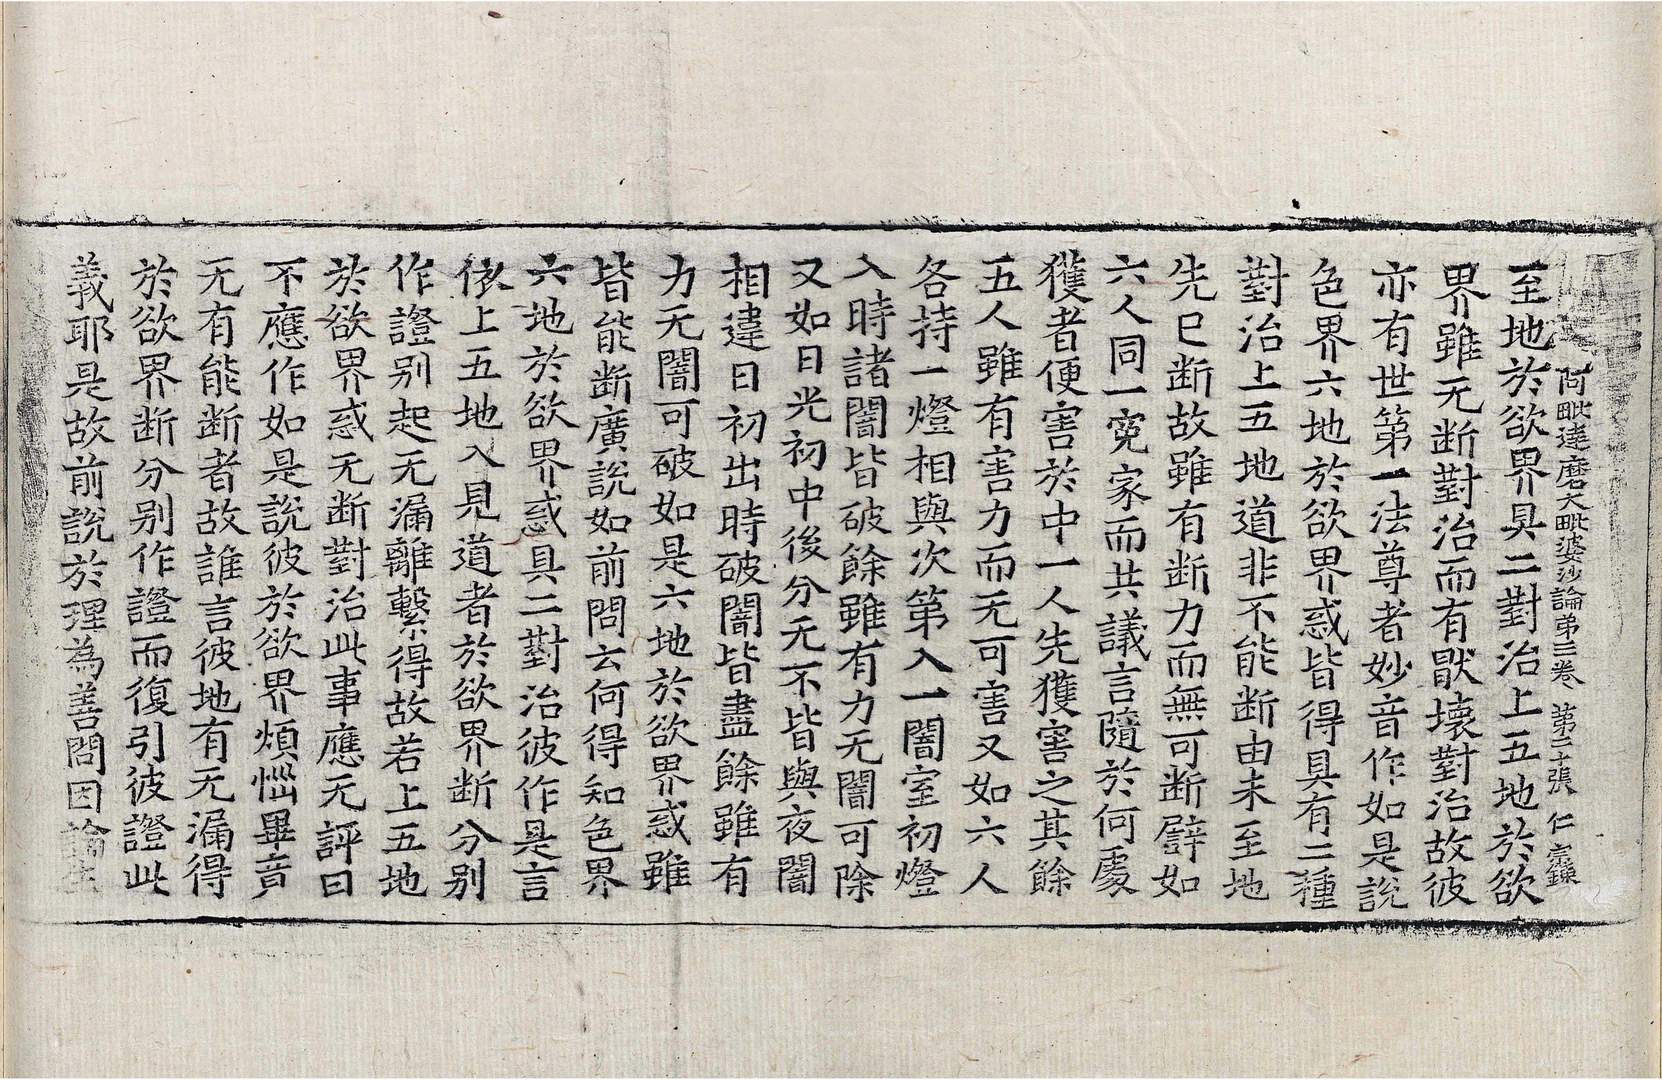 阿毗達磨大毗婆沙論第三卷 第二十張 仁
至地於欲界具二對治上五地於欲
界雖无断對治而有猒壞對治故彼
亦有世第一法尊者妙音作如是說
色界六地於欲界惑皆得具有二種
對治上五地道非不能断由未至地
先已断故雖有断力而無可断譬如
六人同一寃家而共議言隨於何處
獲者便害於中一人先獲害之其餘
五人雖有害力而无可害又如六人
各持一燈相與次第入一闇室初燈
入時諸闇皆破餘雖有力无闇可除
又如日光初中後分无不皆與夜闇
相違日初出時破闇皆盡餘雖有
力无闇可破如是六地於欲界惑雖
皆能断廣說如前問云何得知色界
六地於欲界惑具二對治彼作是言
依上五地入見道者於欲界断分别
作證别起无漏離繫得故若上五地
於欲界惑无断對治此事應无評曰
不應作如是說彼於欲界煩惱畢竟
无有能断者故誰言彼地有无漏得
於欲界断分别作證而復引彼證此
義耶是故前說於理為善問因論生